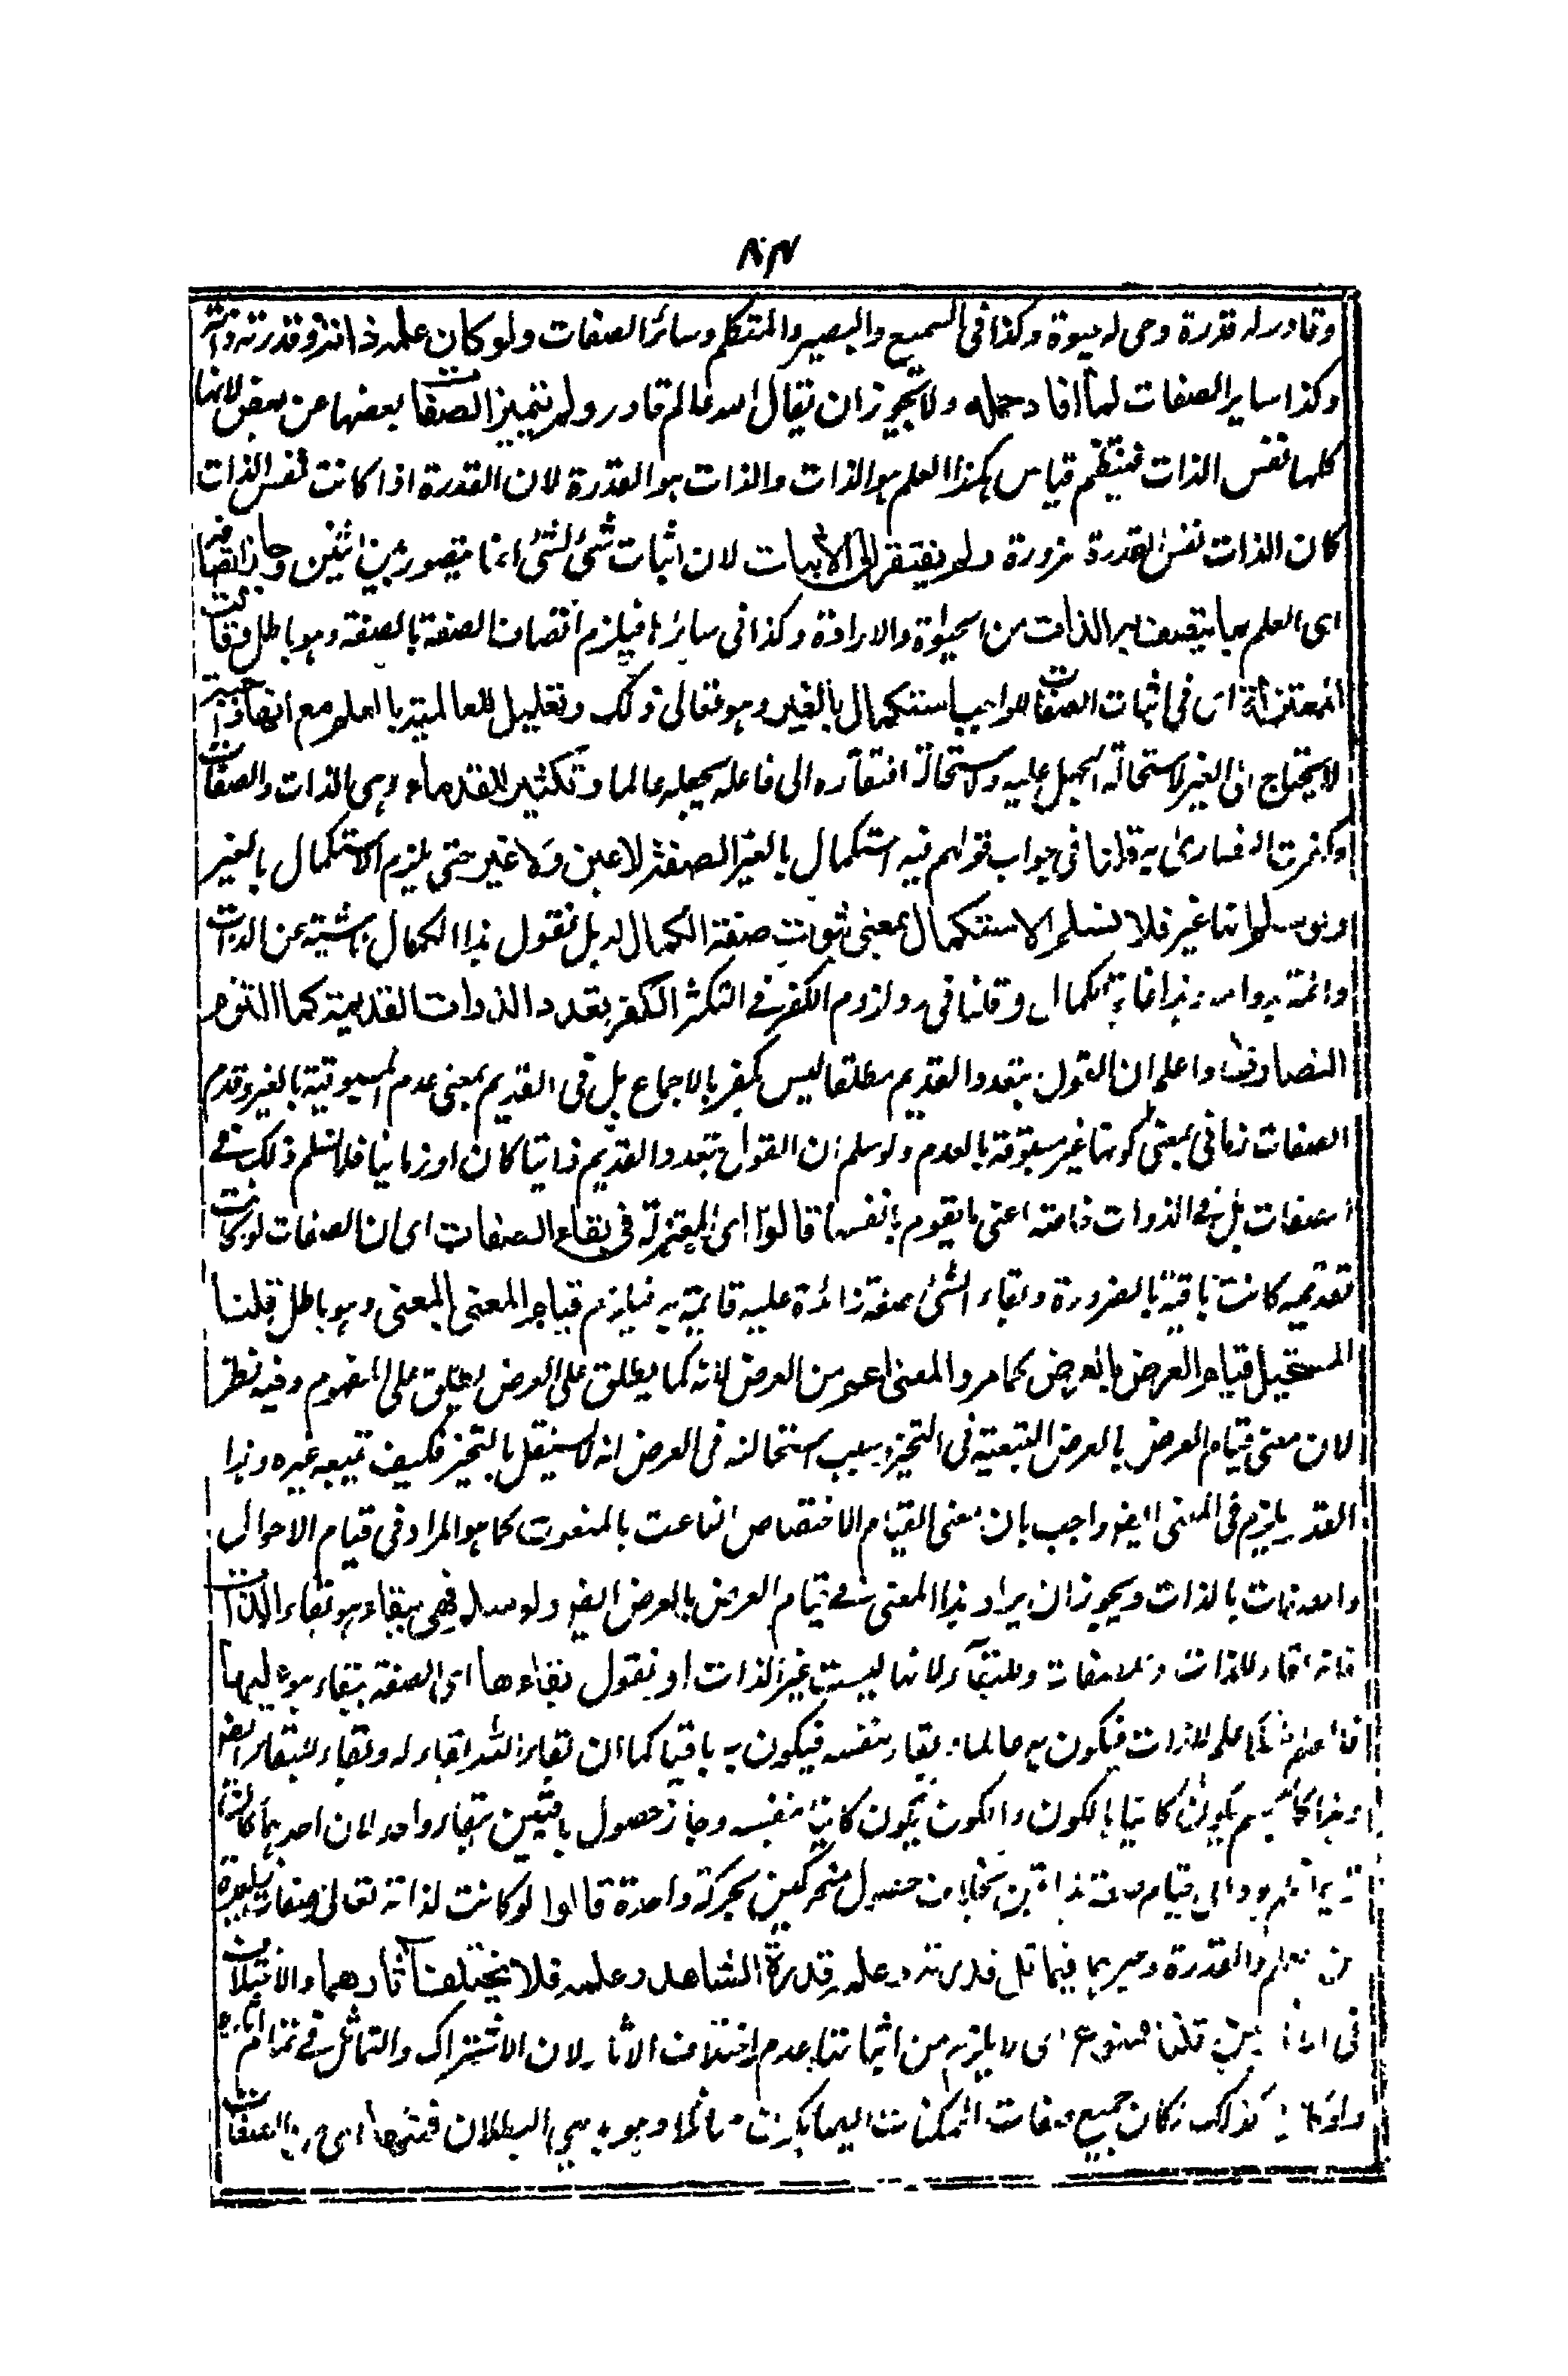 وقادر له قدرة وحى له حيوة وكذا فى السميع والبصير والمتكلم وسائر الصفات ولو كان علمه ذاته وقدرته ذاته
وكذا ساير الصفات لما أفاد حمله ولا يجوز ان يقال الله عالم قادر ولم يتميز الصفات بعضها عن بعض لانها
كلها نفس الذات فينتظم قياس هكذا العلم هو الذات والذات هو القدرة لان القدرة اذا كانت نفس الذات
كان الذات نفس القدرة ضرورة ولم يفتقر الى الاثبات لان اثبات شئ لشئ انما يتصور بين اثنين وجاز اتصافه
اى العلم بما يتصف به الذات من الحيوة والارادة وكذا فى سائرها فيلزم اتصاف الصفة بالصفة وهو باطل وقالت
المعتزلة اى فى اثبات الصفات للواجب استكمال بالغير وهو تعالى ذلك وتعليل للعالمية بالعلم مع انها واجبة
لا يحتاج الى الغير لاستحالة الجهل عليه ولاستحالة افتقاره الى فاعل يجعله عالما وتكثير للقدماء وهى الذات والصفات
وكفرت النصارى به قلنا فى جواب قولهم فيه استكمال بالغير الصفة لا عين ولا غير حتى يلزم الاستكمال بالغير
ولو سلم انها غير فلا نسلم الاستكمال بمعنى ثبوت صفة الكمال له بل نقول هذا الكمال ناشية عن الذات
دائمة بدوامه وهذا غاية الكمال وقلنا فى رد لزوم الكفر فى التكثر الكفر تعدد الذوات القديمة كما التزم
النصارى واعلم ان القول بتعدد القديم مطلقا ليس بكفر بالاجماع بل فى القديم بمعنى عدم المسبوقية بالغير وقدم
الصفات زمانى بمعنى كونها غير مسبوقة بالعدم ولو سلم ان القول بتعدد القديم ذاتيا كان او زمانيا فلا نسلم ذلك فى
الصفات بل فى الذوات خاصة اعنى ما يقوم بانفسها قالوا اى المعتزلة فى بقاء الصفات اى ان الصفات لو كانت
قديمة كانت باقية بالضرورة وبقاء الشئ صفة زائدة عليه قايمة به فيلزم قيام المعنى بالمعنى وهو باطل قلنا
المستحيل قيام العرض بالعرض كما مر والمعنى اعم من العرض لانه كما يطلق على العرض يطلق على المفهوم وفيه نظر
لان معنى قيام العرض بالعرض التبعية فى التحيز وسبب استحالته فى العرض انه لا يستقل بالتحيز فكيف تتبعه غيره وهذا
القدر يلزم فى المعنى ايضا واجيب بان معنى القيام الاختصاص الناعت بالمنعوت كما هو المراد فى قيام الاحوال
والصفات بالذات ويجوز ان يراد هذا المعنى فى قيام العرض بالعرض ايضا ولو سلم فهى ببقاء هو بقاء الذات
فانه بقاء للذات وللصفات وللبقاء لانها ليست غير الذات او نقول بقاءها اى الصفة ببقاء هو عليها
علم للذات فيكون به عالما وبقاء بنفسه فيكون به باقيا كما ان بقاء الله بقاء له وبقاء للبقاء ايضا
وهذا كالجسم يكون كاينا بالكون والكون يكون كاينا بنفسه وجاز حصول باقيين ببقاء واحد لان احدهما
قيام بخلاف حصول متحركين بحركة واحدة قالوا لو كانت لذاته تعالى صفات
من العلم والقدرة وغيرهما فيماثل قدرته وعلمه قدرة الشاهد وعلمه فلا يختلف آثارهما والاختلاف
قلنا ممنوع اى لا يلزم من اثباتنا عدم اختلاف الاثار لان الاشتراك والتماثل فى تمام
كذلك لكان جميع صفات الممكنات وهو بديهى البطلان فمنها اى من الصفات